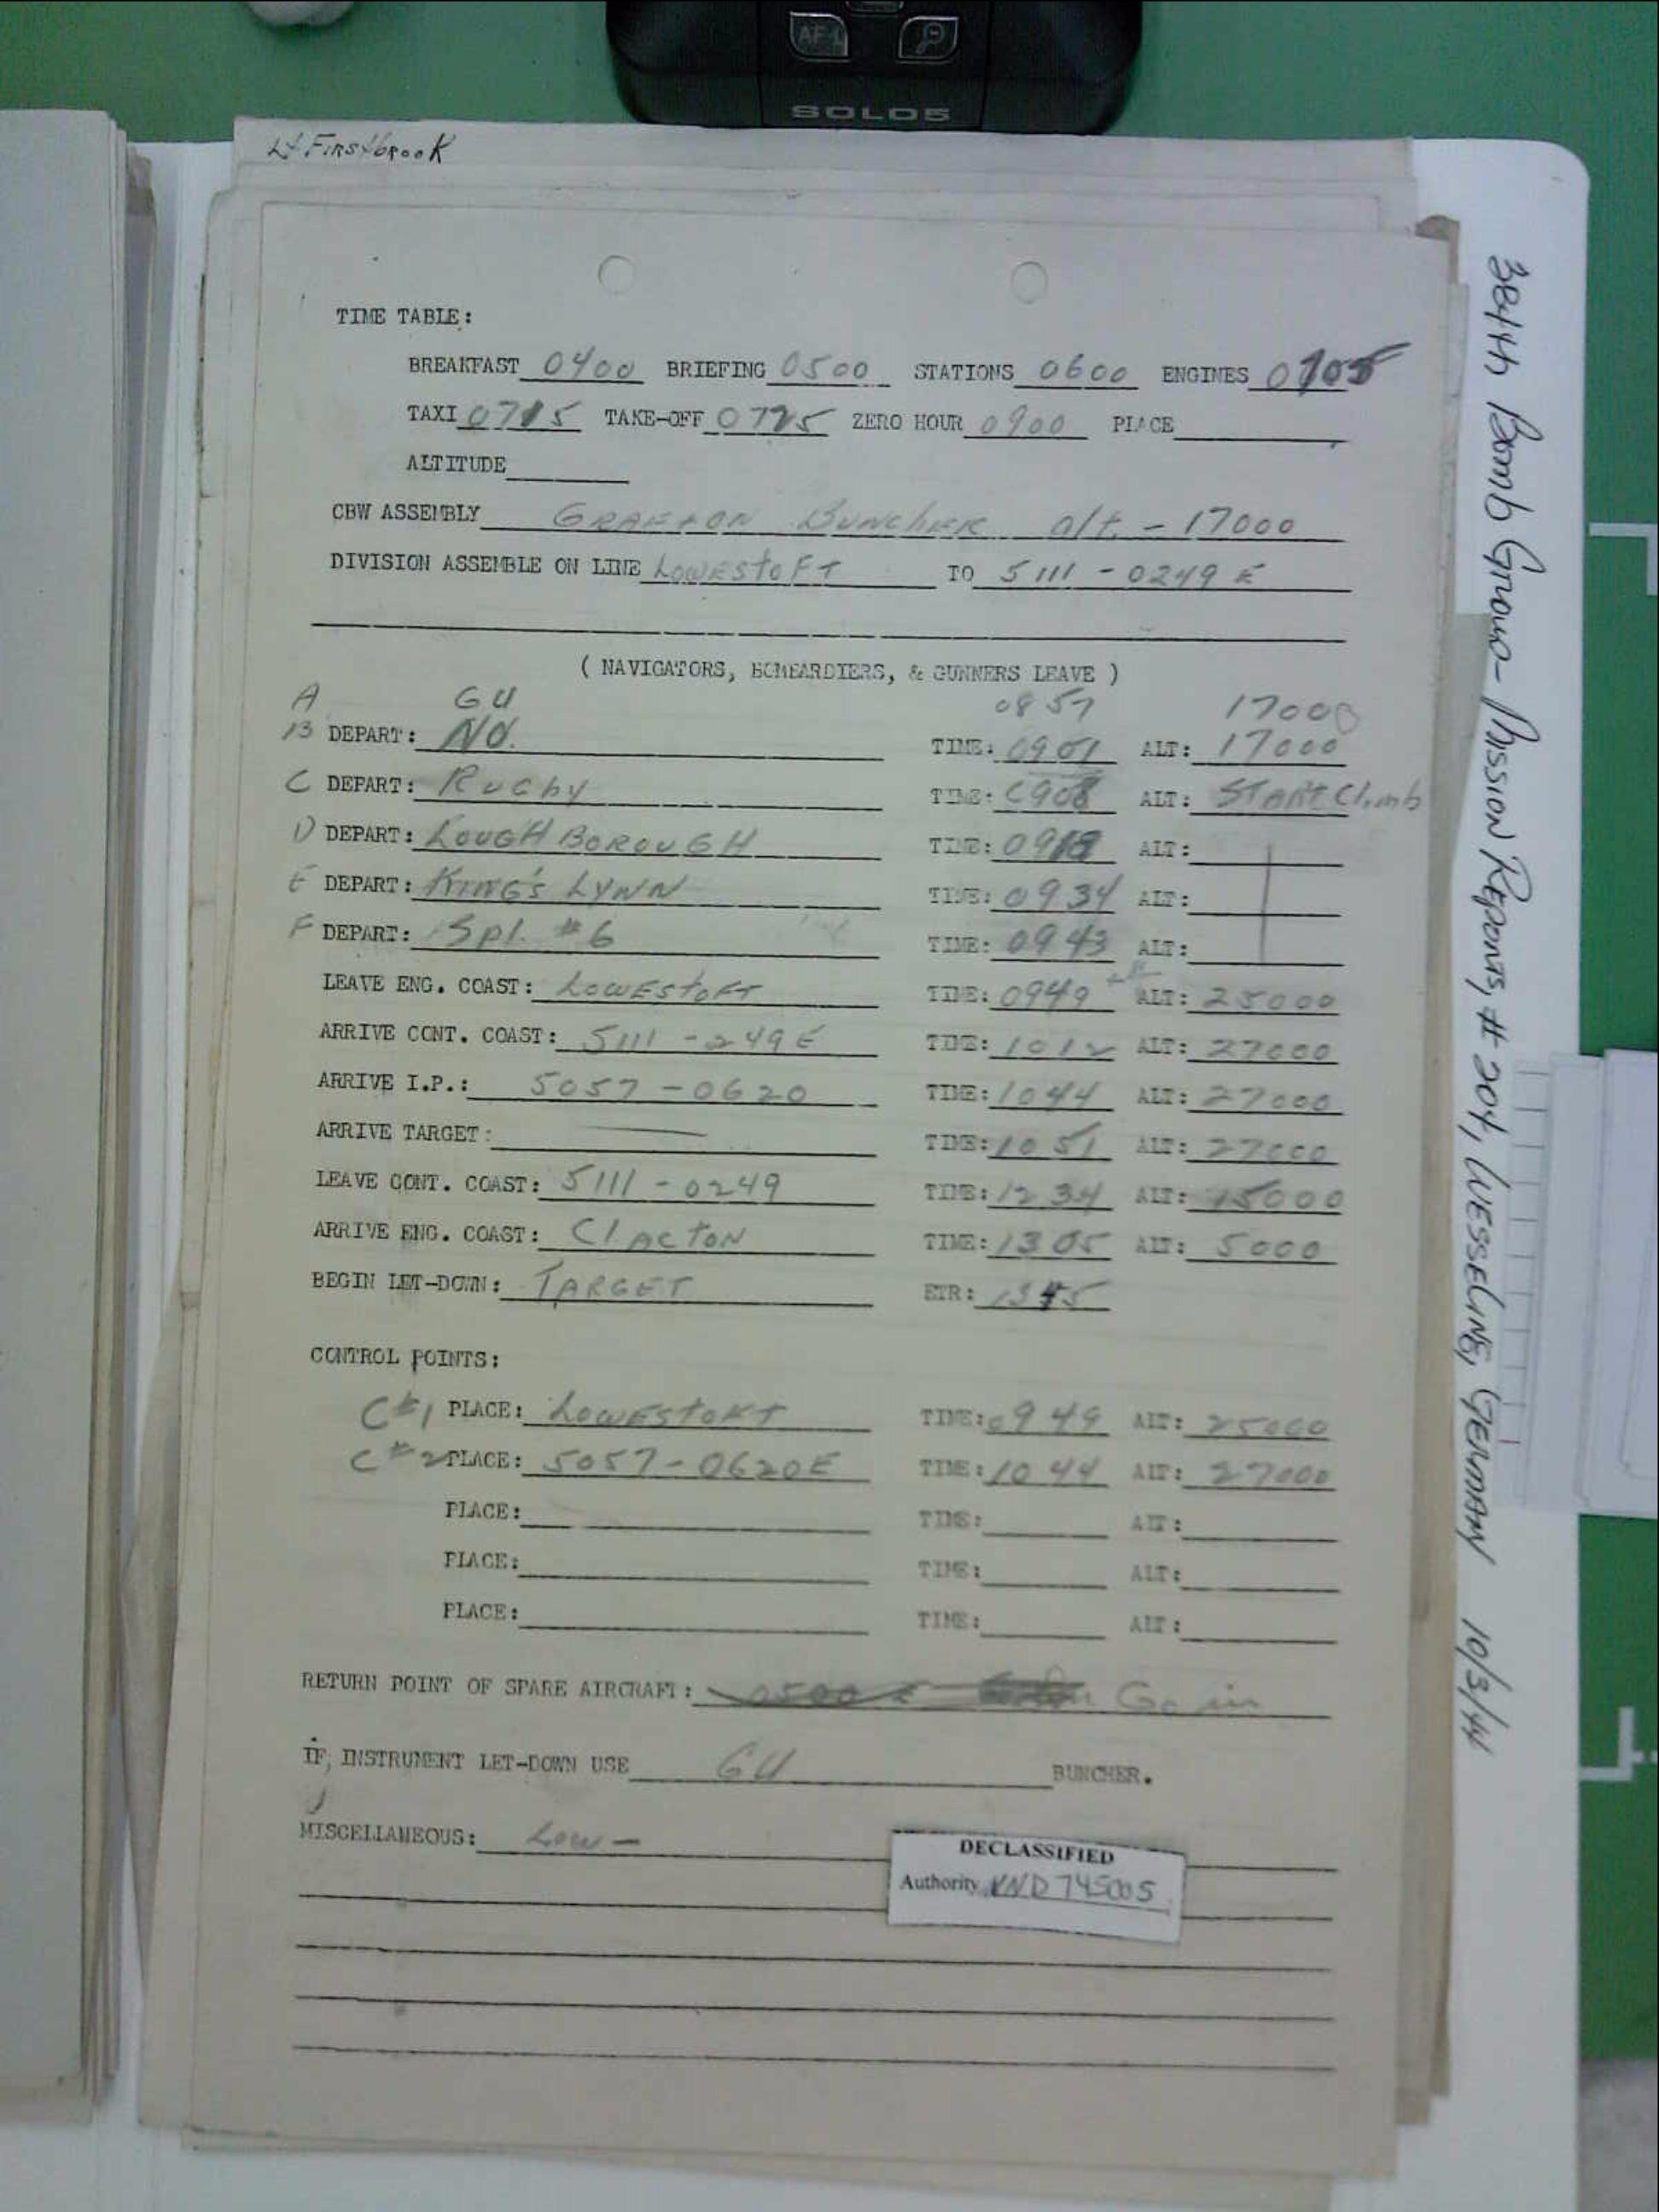 AF-L
SOLO5
Lt Firstbrook
TIME TABLE:
BREAKFAST 0400 BRIEFING 0500 STATIONS 0600 ENGINES 0705
TAXI 0715 TAKE-OFF 0725 ZERO HOUR 0900 PLACE
ALTITUDE
CBW ASSEMBLY GRAFTON BUNCHER alt. - 17000
DIVISION ASSEMBLE ON LINE LOWESTOFT TO 5111 - 0249 E
( NAVIGATORS, BOMBARDIERS, & GUNNERS LEAVE )
A GU 0857 17000
B DEPART: NO. TIME: 0901 ALT: 17000
C DEPART: Rugby TIME: 0908 ALT: START Climb
D DEPART: LOUGHBOROUGH TIME: ALT:
E DEPART: KING'S LYNN TIME: 0934 ALT:
F DEPART: Spl. #6 TIME: 0943 ALT:
LEAVE ENG. COAST: LOWESTOFT TIME: 0949 ALT: 25000
ARRIVE CONT. COAST: 5111 - 249 E TIME: 1012 ALT: 27000
ARRIVE I.P.: 5057 - 0620 TIME: 1044 ALT: 27000
ARRIVE TARGET: — TIME: 1051 ALT: 27000
LEAVE CONT. COAST: 5111 - 0249 TIME: 1234 ALT: 15000
ARRIVE ENG. COAST: CLACTON TIME: 1305 ALT: 5000
BEGIN LET-DOWN: TARGET ETR:
CONTROL POINTS:
C#1 PLACE: LOWESTOFT TIME: 0949 ALT: 25000
C#2 PLACE: 5057 - 0620E TIME: 1044 ALT: 27000
PLACE: TIME: ALT:
PLACE: TIME: ALT:
PLACE: TIME: ALT:
RETURN POINT OF SPARE AIRCRAFT: Go in
IF, INSTRUMENT LET-DOWN USE GU BUNCHER.
MISCELLANEOUS: Low -
DECLASSIFIED
Authority NND 745005
384th Bomb Group - Mission Reports, # 204, WESSELING, GERMAN 10/3/44